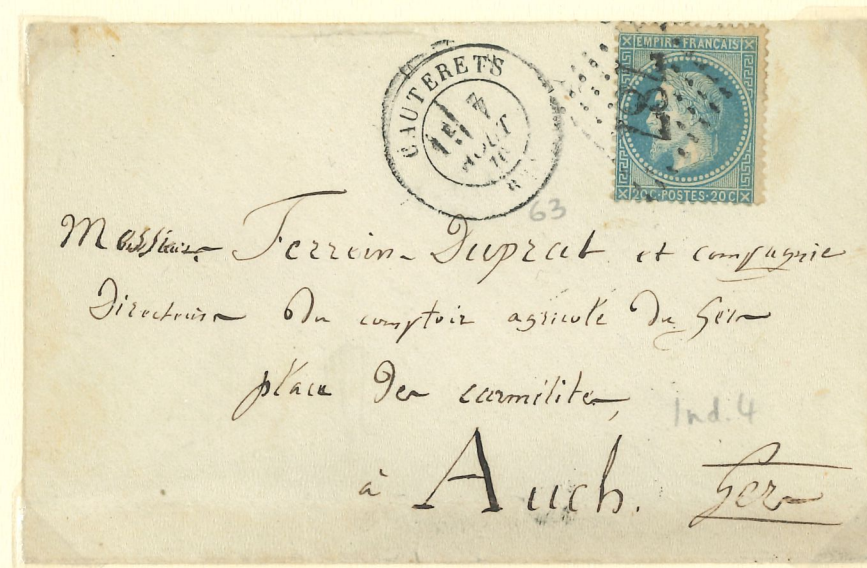 CAUTERETS
7
AOUT
70
EMPIRE FRANÇAIS
20C·POSTES·20C
63
Messieurs Ferrein-Duprat et compagnie
Directeurs du comptoir agricole du Gers
place des carmélites,
Ind. 4
à Auch. Gers